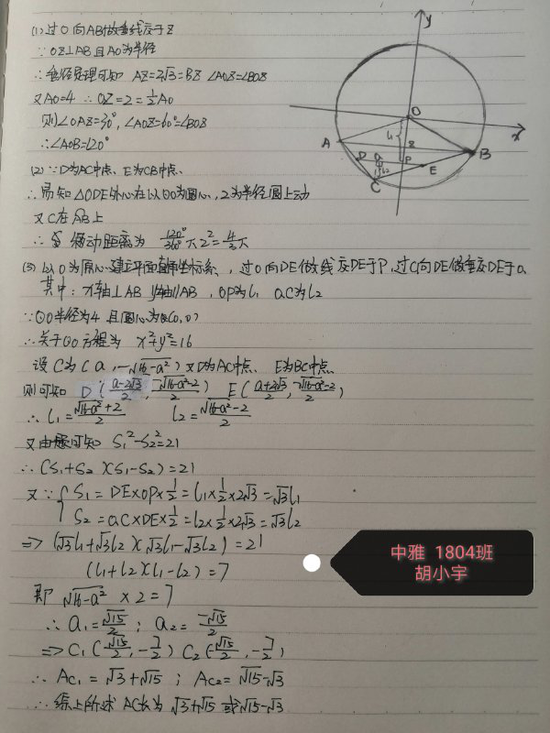 (1) 过O向AB做垂线交于Z
∵ OZ⊥AB 且AO为半径
∴ 垂径定理可知 AZ=2√3=BZ ∠AOZ=∠BOZ
又AO=4 ∴ OZ=2=½AO
则∠OAZ=30°, ∠AOZ=60°=∠BOZ
∴∠AOB=120°
(2) ∵D为AC中点、E为CB中点、
∴易知 △ODE外心在以O为圆心,2为半径圆上动
又C在AB上
运动距离为 120°/360° π 2² = 4/3 π
(3) 以O为原心建立平面直角坐标系,过O向DE做线交DE于P,过C向DE做垂交DE于Q
其中: x轴⊥AB y轴∥AB , OP为l₁ QC为l₂
∵⊙O半径为4 且圆心为O(0,0)
∴关于⊙O方程为 x²+y²=16
设C为(a,-√(16-a²)) 又D为AC中点、 E为BC中点、
则可知 D((a-2√3)/2, (-√(16-a²)-2)/2) E((a+2√3)/2, (-√(16-a²)-2)/2)
∴ l₁=(√(16-a²)+2)/2 l₂=(√(16-a²)-2)/2
又由题可知 S₁²-S₂²=21
∴ (S₁+S₂)(S₁-S₂)=21
又∵ { S₁=DE×OP×½=l₁×½×2√3=√3l₁
S₂=QC×DE×½=l₂×½×2√3=√3l₂
⇒ (√3l₁+√3l₂)(√3l₁-√3l₂)=21
(l₁+l₂)(l₁-l₂)=7
即 √(16-a²) ×2=7
∴ a₁=√15/2 ; a₂=-√15/2
⇒ C₁(√15/2, -7/2) C₂(-√15/2, -7/2)
∴ AC₁=√3+√15 ; AC₂=√15-√3
∴ 综上所述 AC长为 √3+√15 或√15-√3
y
O
x
l₁
A
Z
B
D
Q
P
E
l₂
C
中雅 1804班
胡小宇